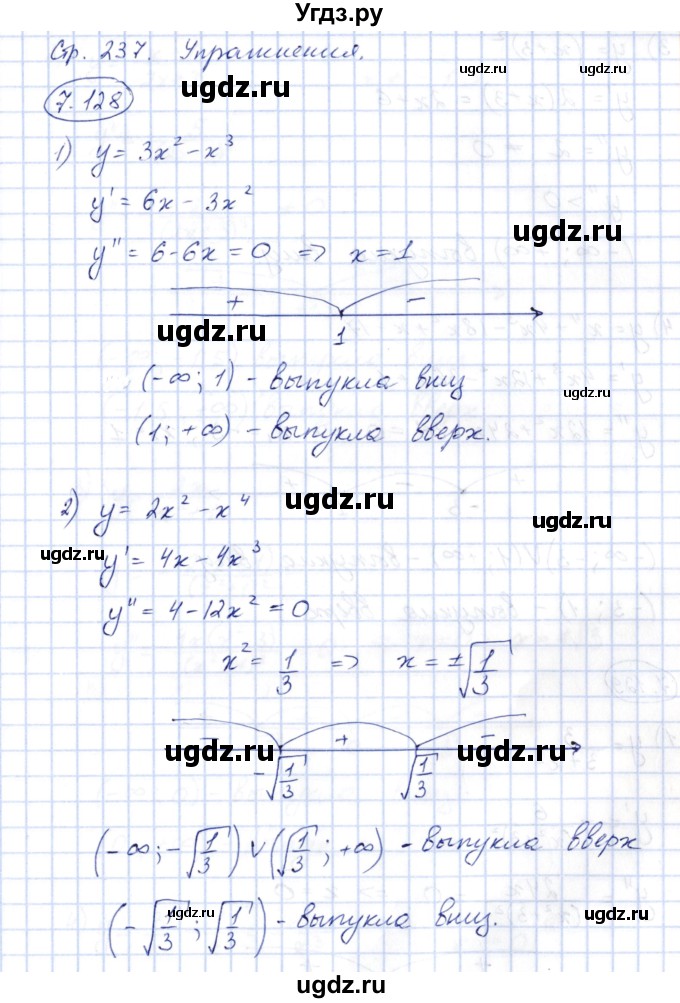 Угдз.ру
Стр. 237. Упражнения.
ugdz.ru
ugdz.ru
7.128
ugdz.ru
1) y = 3x² - x³
y' = 6x - 3x²
ugdz.ru
y'' = 6 - 6x = 0 => x = 1
+ -
ugdz.ru
1
(-∞; 1) - выпукла вниз
ugdz.ru
(1; +∞) - выпукла вверх.
2) y = 2x² - x⁴
ugdz.ru
ugdz.ru
ugdz.ru
y' = 4x - 4x³
y'' = 4 - 12x² = 0
x² = 1/3 => x = ±√(1/3)
ugdz.ru
- + -
ugdz.ru
ugdz.ru
-√(1/3) √(1/3)
(-∞; -√(1/3)) ∨ (√(1/3); +∞) - выпукла вверх
ugdz.ru
ugdz.ru
ugdz.ru
(-√(1/3); √(1/3)) - выпукла вниз.